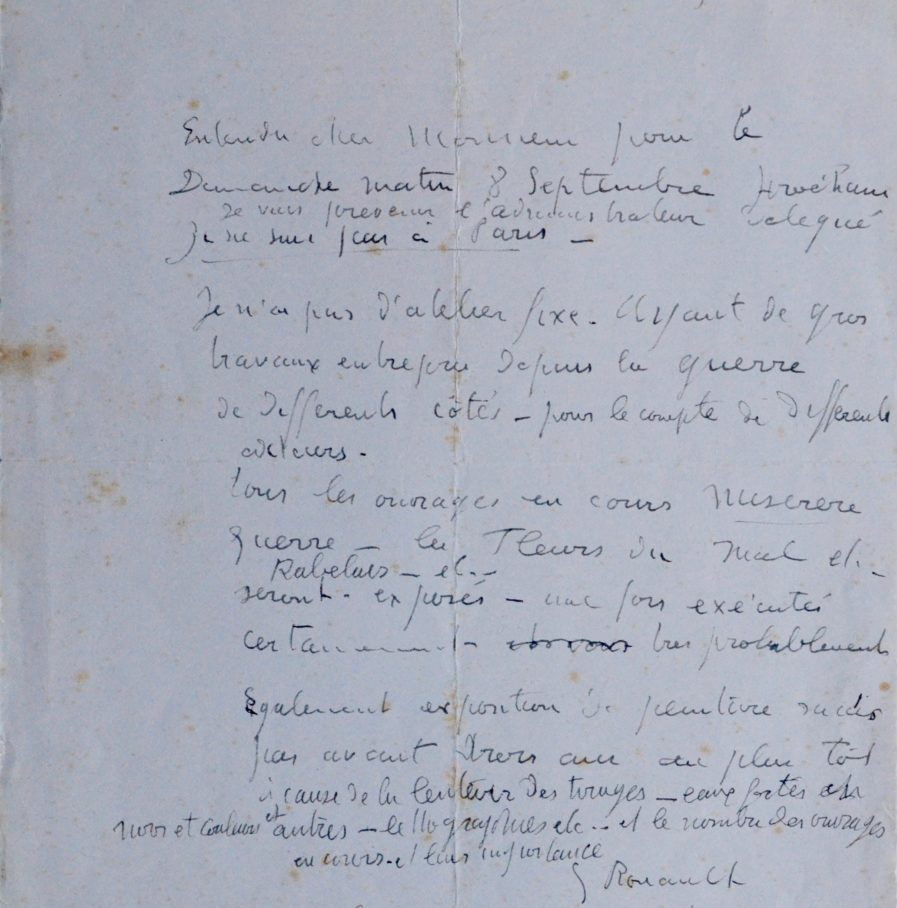 Entendu cher Monsieur pour le
Dimanche matin 8 Septembre prochain
Je vais prévenir l'administrateur délégué
Je ne suis pas à Paris —
Je n'ai pas d'atelier fixe. Ayant de gros
travaux entrepris depuis la guerre
de différents côtés — pour le compte de différents
éditeurs.
tous les ouvrages en cours Miserere
Guerre — les Fleurs du Mal et. —
Rabelais — et. —
seront exposés — une fois exécutés
certainement très probablement
Egalement exposition de peinture
pas avant trois ans au plus tôt
à cause de la lenteur des tirages — eaux fortes en
noir et couleurs et autres — lithographies etc — et le nombre des ouvrages
en cours et leur importance
G Rouault